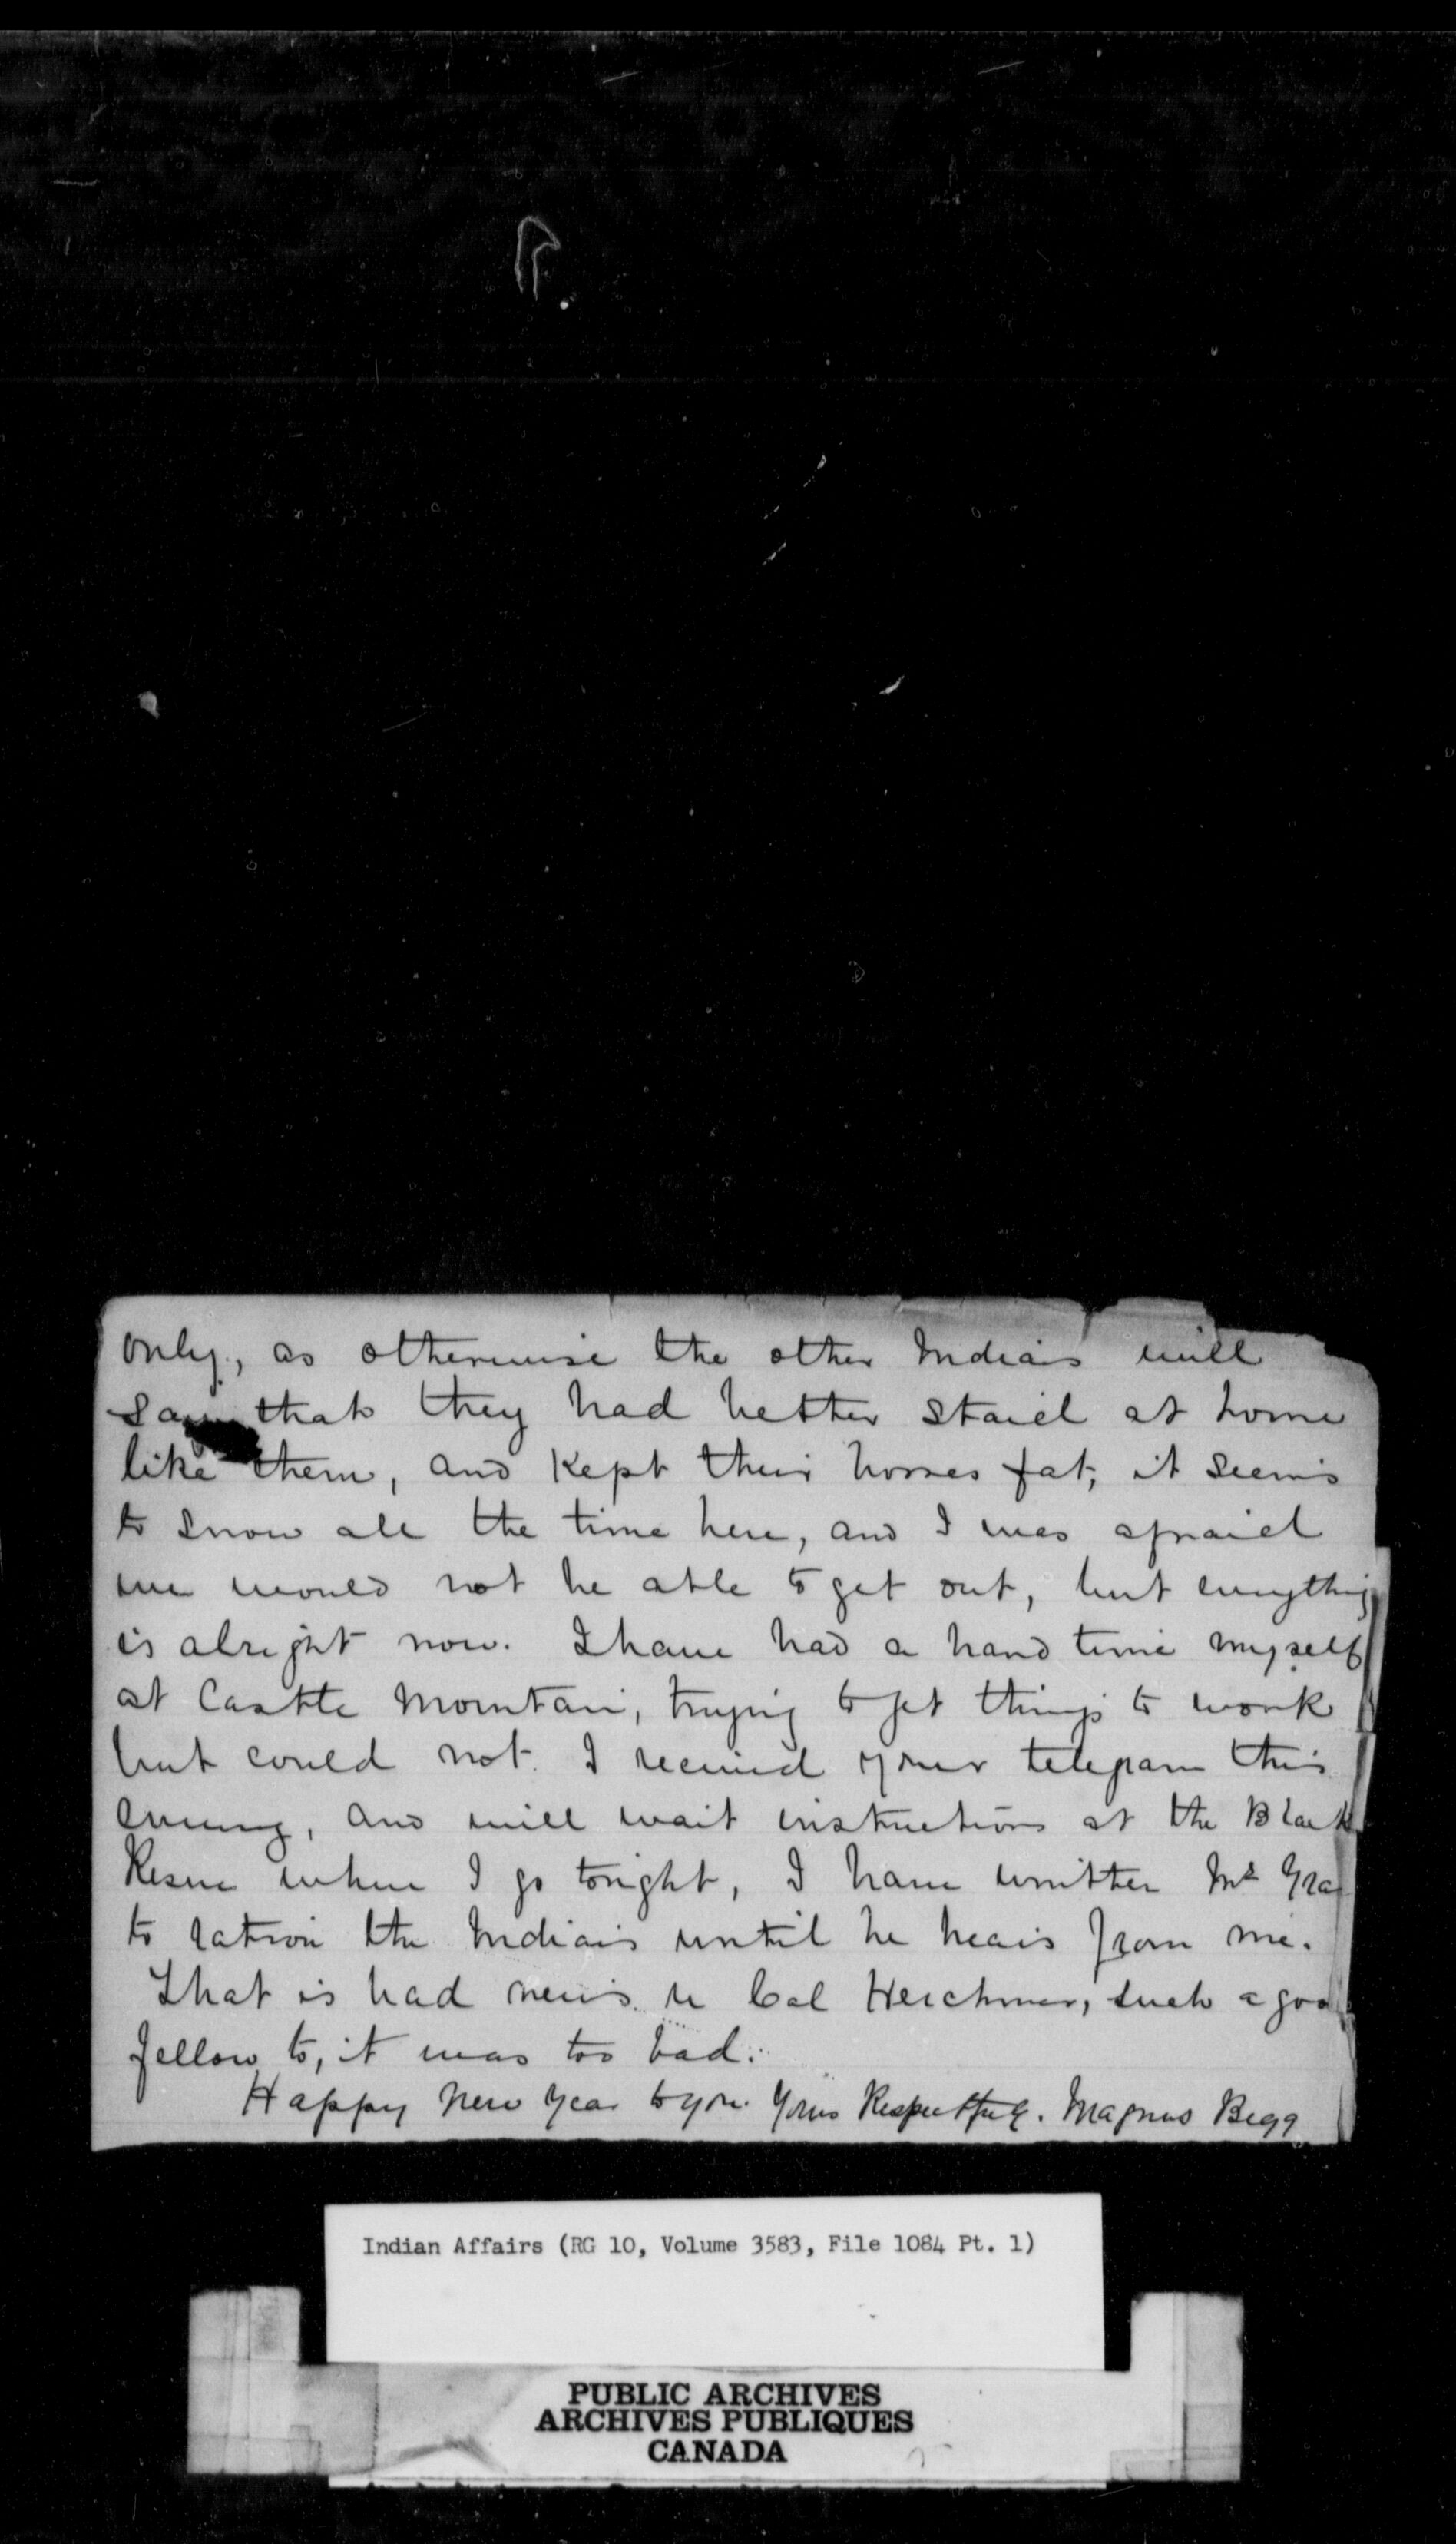 only, as otherwise the other Indians will
say that they had better staid at home
like them, and kept their horses fat, it seems
to snow all the time here, and I was afraid
we would not be able to get out, but everything
is alright now. I have had a hard time myself
at Castle Mountain, trying to get things to work
but could not. I received your telegram this
evening, and will wait instructions at the Black
Reserve where I go tonight, I have written Mr
to ration the Indians until he hears from me.
That is bad news re Col Herchmer, such a good
fellow to, it was too bad.
Happy New Year to you. Yours Respectfully. Magnus Begg
Indian Affairs (RG 10, Volume 3583, File 1084 Pt. 1)
PUBLIC ARCHIVES
ARCHIVES PUBLIQUES
CANADA